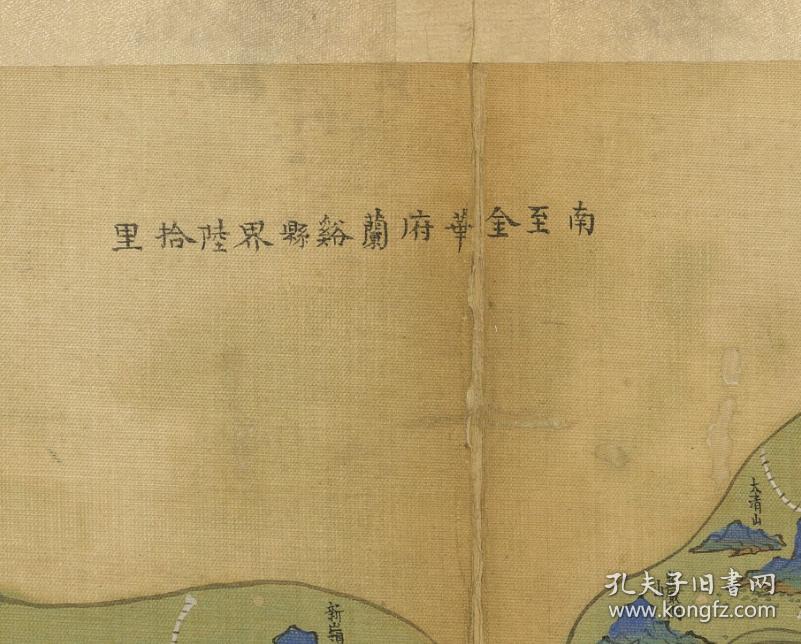 南至金華府蘭谿縣界陸拾里
大清山
新嶺
孔夫子旧書网
www.kongfz.com